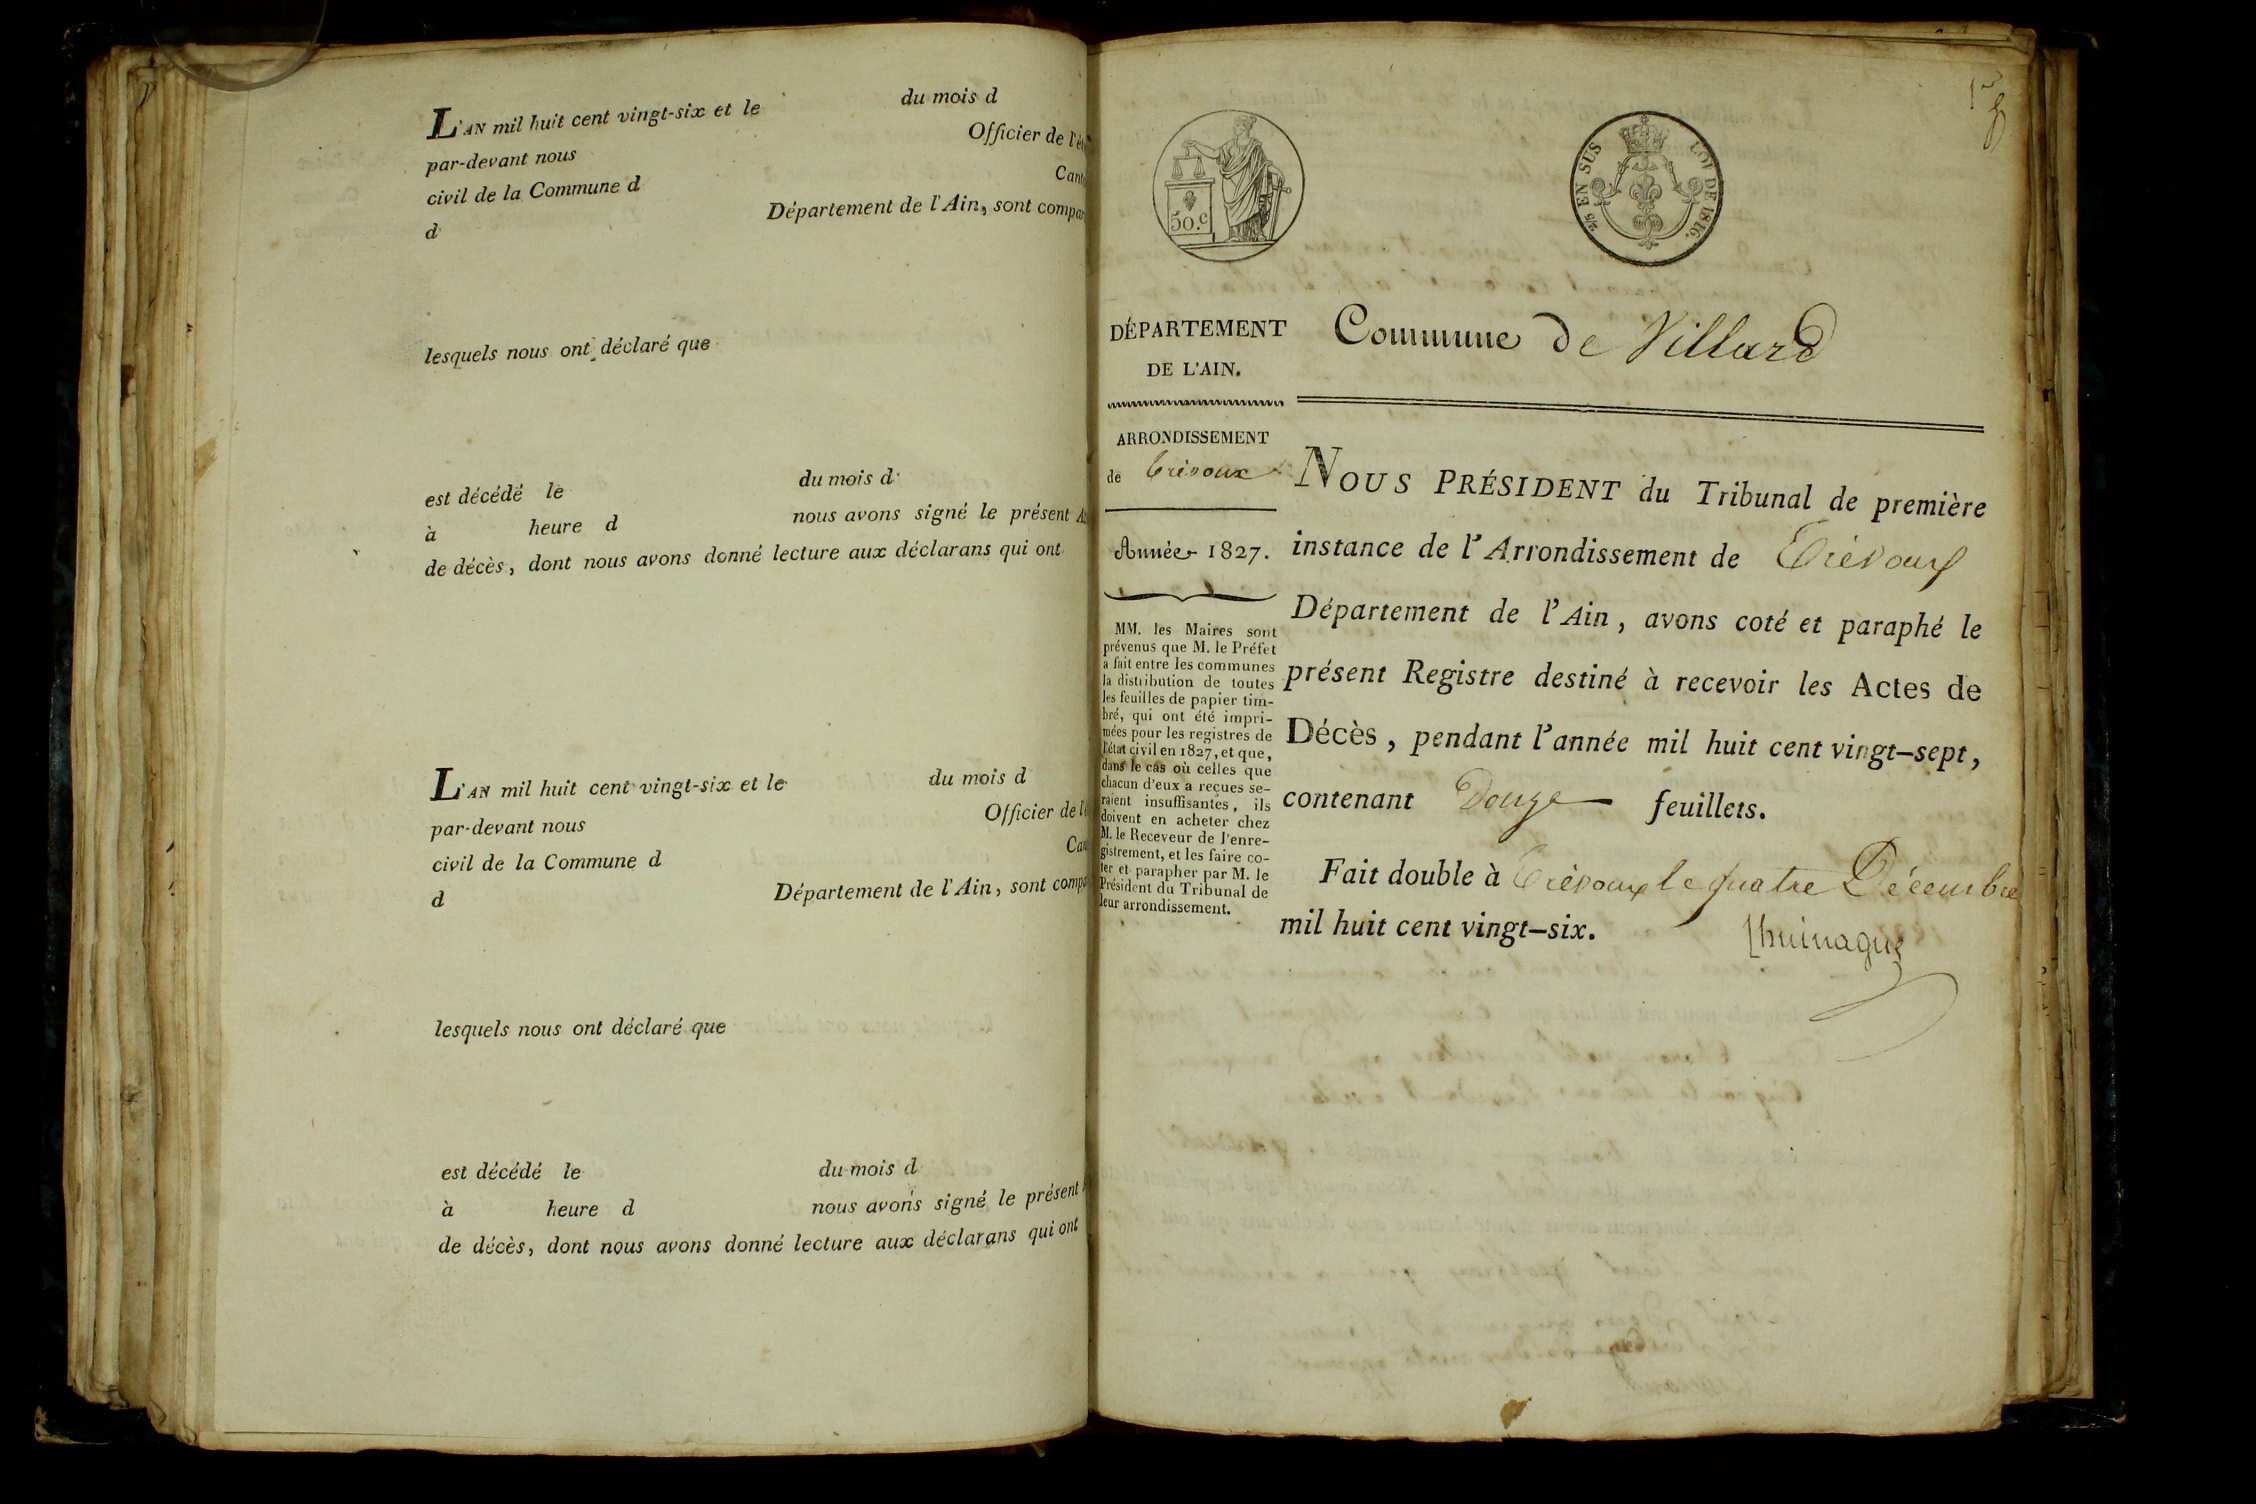 L'AN mil huit cent vingt-six et le du mois d
par-devant nous Officier de l'é
civil de la Commune d Cant
d Département de l'Ain, sont compar
lesquels nous ont déclaré que
est décédé le du mois d
à heure d nous avons signé le présent A
de décès, dont nous avons donné lecture aux déclarans qui ont
L'AN mil huit cent vingt-six et le du mois d
par-devant nous Officier de l'
civil de la Commune d Ca
d Département de l'Ain, sont compa
lesquels nous ont déclaré que
est décédé le du mois d
à heure d nous avons signé le présent
de décès, dont nous avons donné lecture aux déclarans qui ont
50.c
2/5 EN SUS LOI DE 1816.
DÉPARTEMENT
DE L'AIN.
ARRONDISSEMENT
de trévoux
Année 1827.
MM. les Maires sont
prévenus que M. le Préfet
a fait entre les communes
la distribution de toutes
les feuilles de papier tim-
bré, qui ont été impri-
mées pour les registres de
l'état civil en 1827, et que,
dans le cas où celles que
chacun d'eux a reçues se-
raient insuffisantes, ils
doivent en acheter chez
M. le Receveur de l'enre-
gistrement, et les faire co-
ter et parapher par M. le
Président du Tribunal de
leur arrondissement.
Commune de Villard
NOUS PRÉSIDENT du Tribunal de première
instance de l'Arrondissement de Trévoux
Département de l'Ain, avons coté et paraphé le
présent Registre destiné à recevoir les Actes de
Décès, pendant l'année mil huit cent vingt-sept,
contenant Douze feuillets.
Fait double à Trévoux le quatre Décembre
mil huit cent vingt-six.